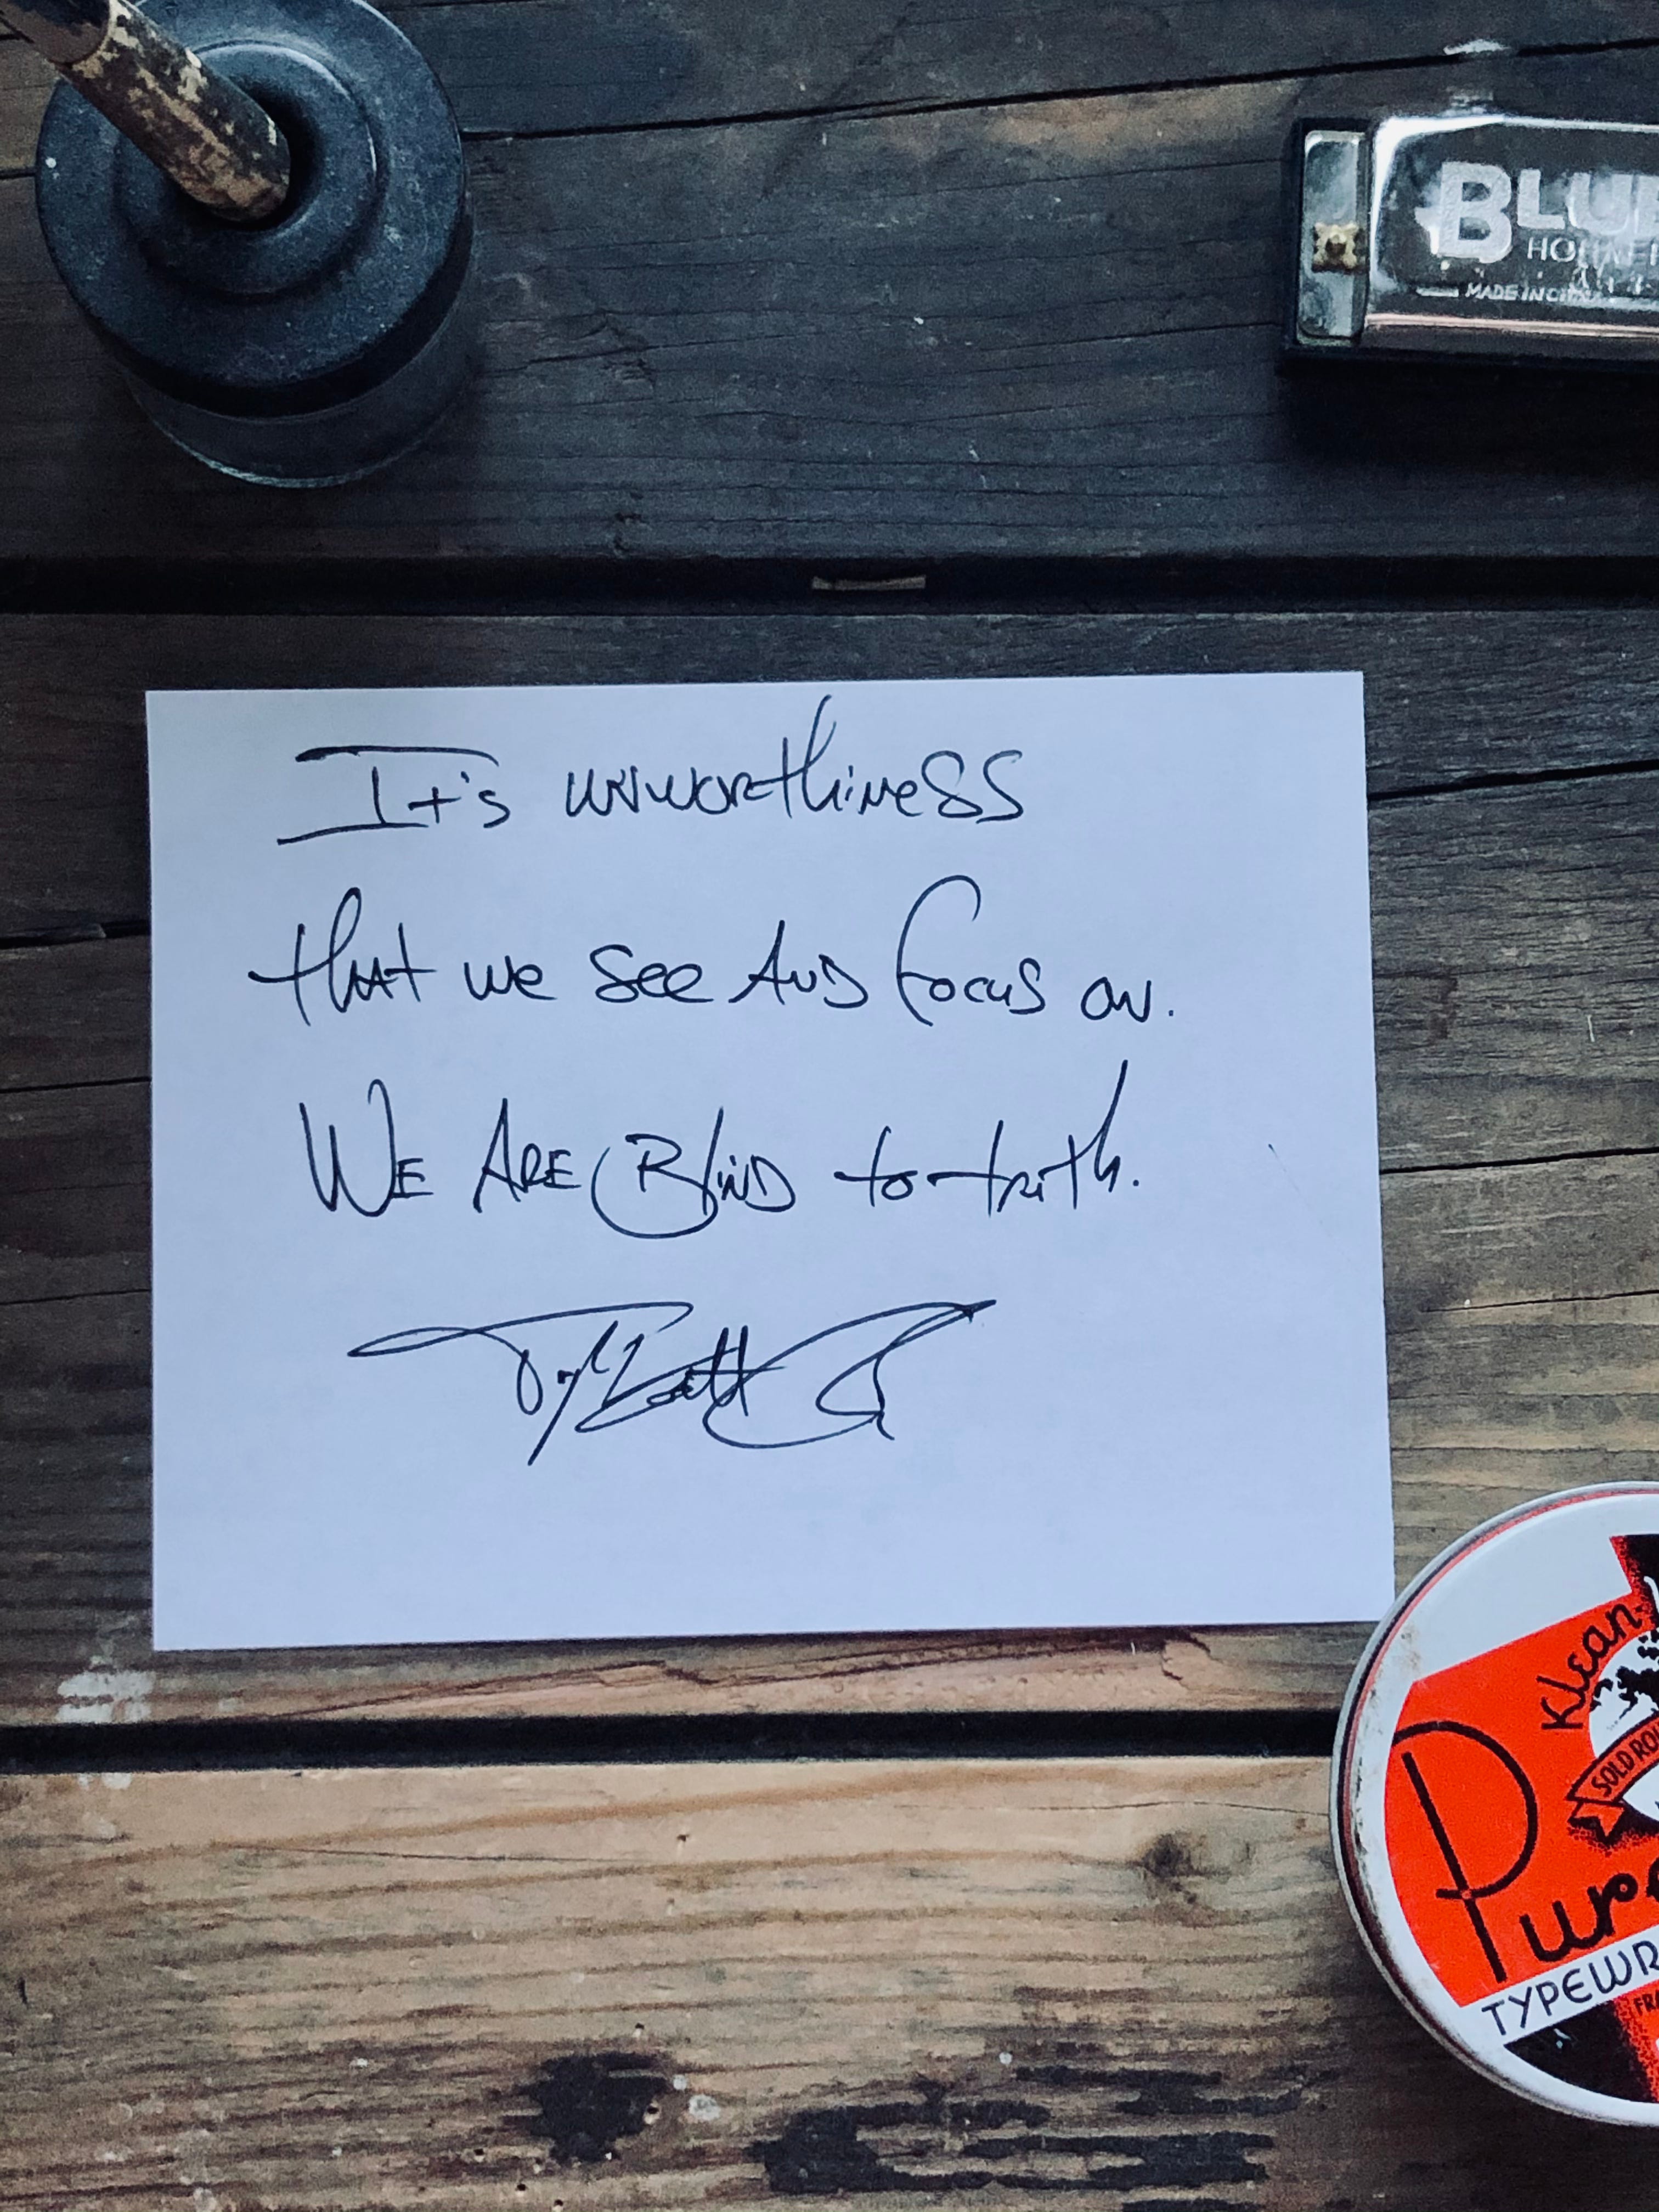 BLU
HOHNER
MADE IN CHINA
It's unworthiness
that we see and focus on.
We are Blind to truth.
Klean
SOLD
Pure
TYPEWR